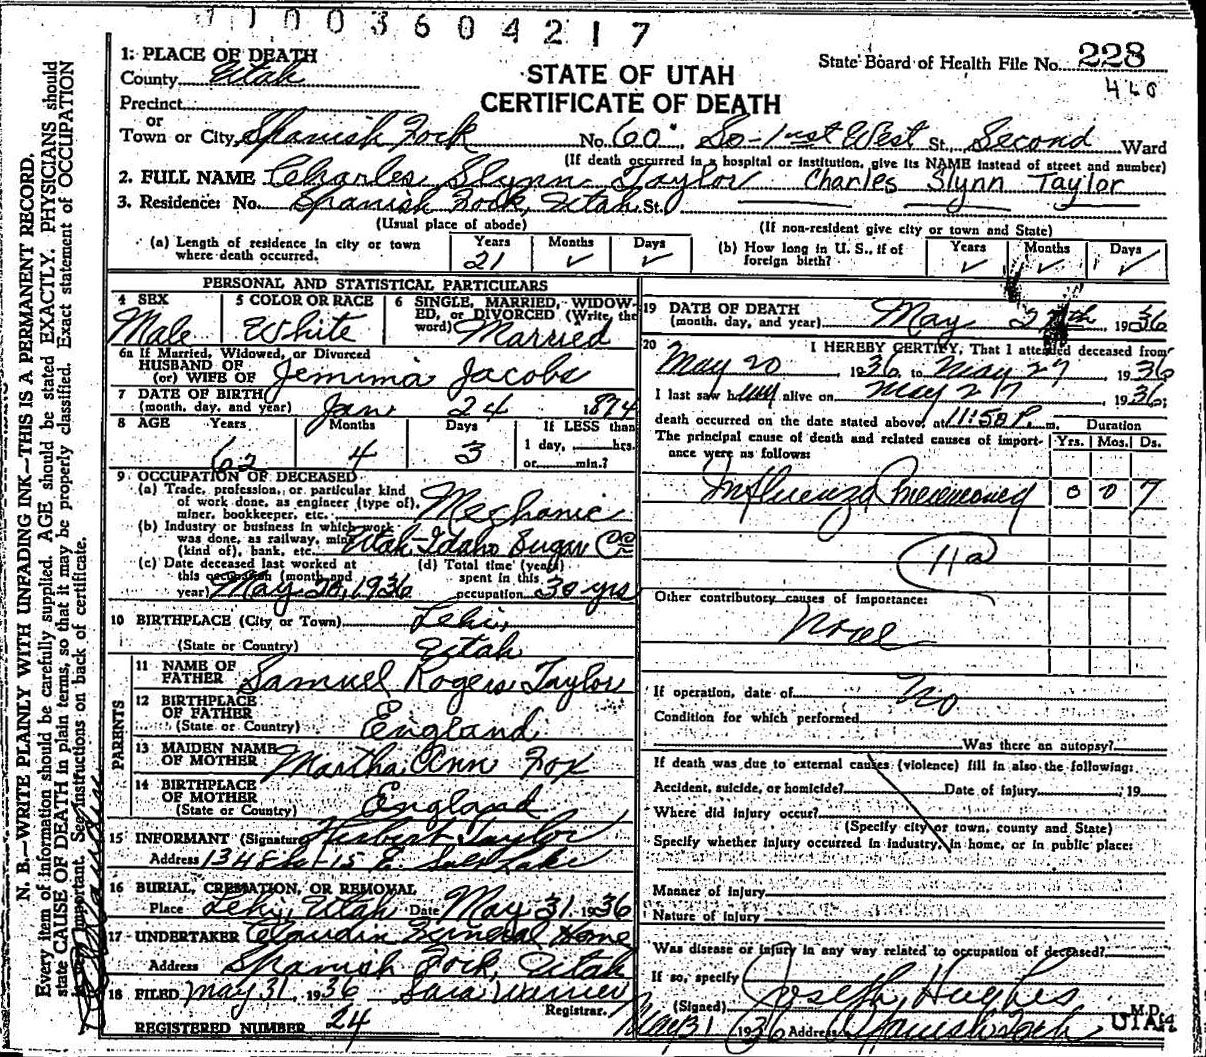 1003604217
1. PLACE OF DEATH
County Utah
Precinct
or
Town or City Spanish Fork No. 60 So-1st West St. Second Ward
STATE OF UTAH
CERTIFICATE OF DEATH
State Board of Health File No. 228
460
(If death occurred in a hospital or institution, give its NAME instead of street and number)
2. FULL NAME Charles Slynn Taylor Charles Slynn Taylor
3. Residence: No. Spanish Fork, Utah St.
(Usual place of abode) (If non-resident give city or town and State)
(a) Length of residence in city or town where death occurred. Years 21 Months ✓ Days ✓
(b) How long in U. S., if of foreign birth? Years ✓ Months ✓ Days ✓
PERSONAL AND STATISTICAL PARTICULARS
4 SEX Male
5 COLOR OR RACE White
6 SINGLE, MARRIED, WIDOWED, or DIVORCED (Write the word) Married
6a If Married, Widowed, or Divorced
HUSBAND OF
(or) WIFE OF Jemima Jacobs
7 DATE OF BIRTH
(month, day, and year) Jan 24 1874
8 AGE Years 62 Months 4 Days 3 If LESS than
1 day, hrs.
or min.?
9 OCCUPATION OF DECEASED
(a) Trade, profession, or particular kind
of work done, as engineer (type of),
miner, bookkeeper, etc. Mechanic
(b) Industry or business in which work
was done, as railway, mine
(kind of), bank, etc. Utah-Idaho Sugar Co
(c) Date deceased last worked at
this occupation (month and
year) May 20, 1936
(d) Total time (years)
spent in this
occupation 30 yrs
10 BIRTHPLACE (City or Town) Lehi,
(State or Country) Utah
PARENTS
11 NAME OF
FATHER Samuel Rogers Taylor
12 BIRTHPLACE
OF FATHER
(State or Country) England
13 MAIDEN NAME
OF MOTHER Martha Ann Fox
14 BIRTHPLACE
OF MOTHER
(State or Country) England
15 INFORMANT (Signature) Herbert Taylor
Address 1348 15 E. Salt Lake
16 BURIAL, CREMATION, OR REMOVAL
Place Lehi, Utah Date May 31 1936
17 UNDERTAKER Claudin Funeral Home
Address Spanish Fork, Utah
18 FILED May 31 1936 Sara Warner
Registrar.
REGISTERED NUMBER 24
19 DATE OF DEATH
(month, day, and year) May 27th 1936
20 I HEREBY CERTIFY, That I attended deceased from
May 20, 1936, to May 27, 1936
I last saw him alive on May 27 1936;
death occurred on the date stated above, at 11:50 P. m.
The principal cause of death and related causes of importance were as follows: Duration Yrs. Mos. Ds.
Influenza Pneumonia 0 0 7
11a
Other contributory causes of importance:
None
If operation, date of No
Condition for which performed
Was there an autopsy?
If death was due to external causes (violence) fill in also the following:
Accident, suicide, or homicide? Date of injury , 19
Where did injury occur?
(Specify city or town, county and State)
Specify whether injury occurred in industry, in home, or in public place:
Manner of injury
Nature of injury
Was disease or injury in any way related to occupation of deceased?
If so, specify
(Signed) Joseph Hughes M.D.
May 31 1936 Address Spanish Fork UTAH
N. B.—WRITE PLAINLY WITH UNFADING INK—THIS IS A PERMANENT RECORD.
Every item of information should be carefully supplied. AGE should be stated EXACTLY. PHYSICIANS should
state CAUSE OF DEATH in plain terms, so that it may be properly classified. Exact statement of OCCUPATION
is very important. See instructions on back of certificate.